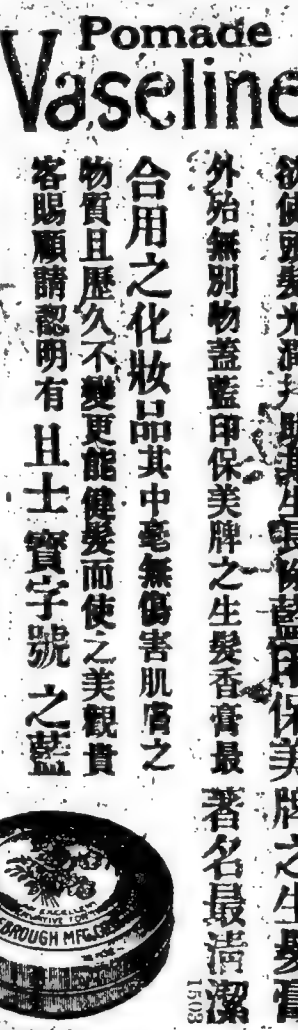 Pomade
Vaseline
欲使頭髮光潤并助其生長除藍印保美牌之生髮膏
外殆無別物蓋藍印保美牌之生髮香膏最著名最淸潔
合用之化妝品其中毫無傷害肌膚之
物質且歷久不變更能健髮而使之美觀貴
客賜顧請認明有且士寳字號之藍
EXCELLENT
EBROUGH MFG.CO
1503